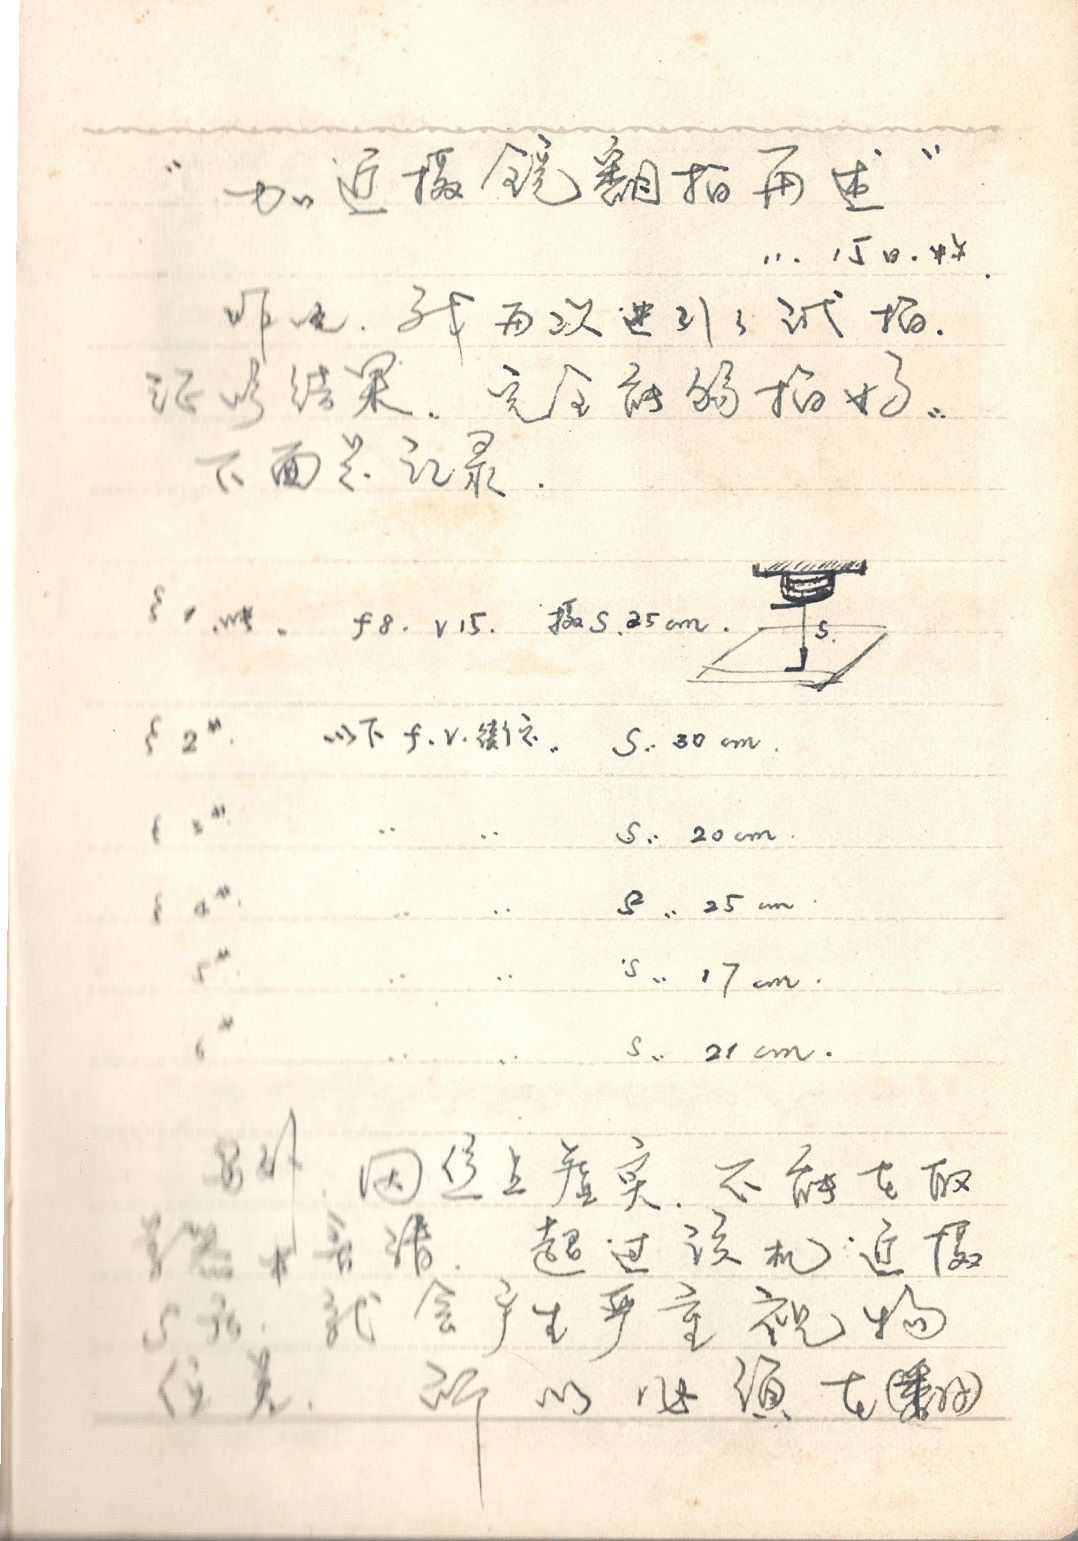 "加近摄镜翻拍再述"
11.15日.
昨晚.我再次进行了试拍.
证明结果.完全能够拍好..
下面是记录.
1 f8. v15. 摄S.25cm.
S.
2#. 以下f.v. S..30cm.
3# .. .. S..20cm.
4#. .. .. S..25cm.
5# .. .. S..17cm.
6# .. .. S..21cm.
另外.因焦点虚实.不能在取
景器中看清.超过该机近摄
S后.就会产生严重视物
位差.所以必须在(翻